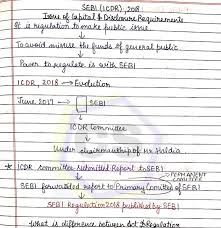 SEBI (ICDR), 2018
Issue of Capital & Disclosure Requirements
It is regulation to make public issue.
To avoid misuse the funds of general public
Power to regulate is with SEBI
ICDR, 2018 → Evolution
June 2017 → SEBI
ICDR Committee
Under chairmanship of Mr Haldia
* ICDR committee submitted Report to SEBI
PERMANENT COMMITTEE
SEBI forwarded report to Primary Committee of SEBI
SEBI Regulation 2018 published by SEBI
What is difference between Act & Regulation